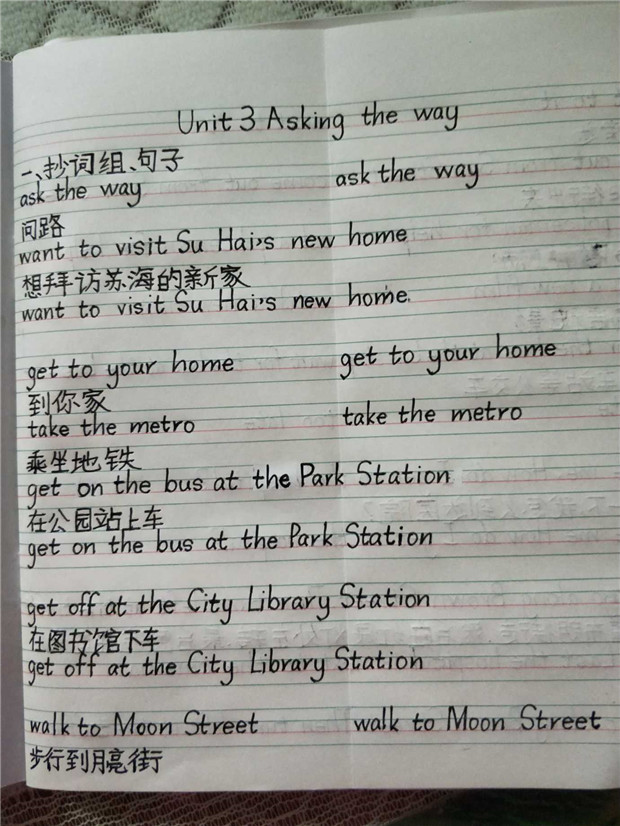 Unit 3 Asking the way
一、抄词组、句子
ask the way ask the way
问路
want to visit Su Hai's new home
想拜访苏海的新家
want to visit Su Hai's new home.
get to your home get to your home
到你家
take the metro take the metro
乘坐地铁
get on the bus at the Park Station
在公园站上车
get on the bus at the Park Station
get off at the City Library Station
在图书馆下车
get off at the City Library Station
walk to Moon Street walk to Moon Street
步行到月亮街